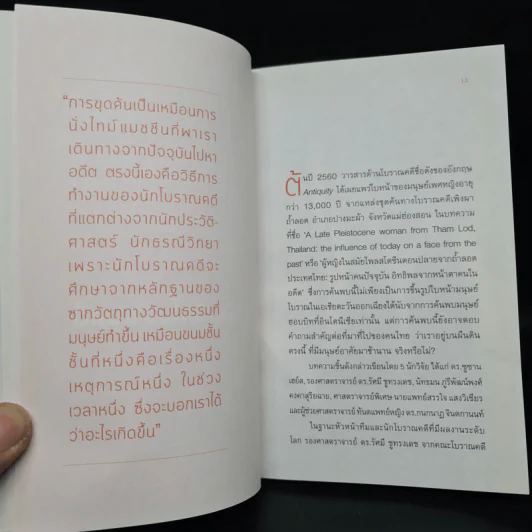 “การขุดค้นเป็นเหมือนการ
นั่งไทม์แมชชีนที่พาเรา
เดินทางจากปัจจุบันไปหา
อดีต ตรงนี้เองคือวิธีการ
ทำงานของนักโบราณคดี
ที่แตกต่างจากนักประวัติ-
ศาสตร์ นักธรณีวิทยา
เพราะนักโบราณคดีจะ
ศึกษาจากหลักฐานของ
ซากวัตถุทางวัฒนธรรมที่
มนุษย์ทำขึ้น เหมือนขนมชั้น
ชั้นที่หนึ่งคือเรื่องหนึ่ง
เหตุการณ์หนึ่ง ในช่วง
เวลาหนึ่ง ซึ่งจะบอกเราได้
ว่าอะไรเกิดขึ้น”
ต้นปี 2560 วารสารด้านโบราณคดีชื่อดังของอังกฤษ
Antiquity ได้เผยแพร่ใบหน้าของมนุษย์เพศหญิงอายุ
กว่า 13,000 ปี จากแหล่งขุดค้นทางโบราณคดีเพิงผา
ถ้ำลอด อำเภอปางมะผ้า จังหวัดแม่ฮ่องสอน ในบทความ
ที่ชื่อ ‘A Late Pleistocene woman from Tham Lod,
Thailand: the influence of today on a face from the
past’ หรือ ‘ผู้หญิงในสมัยไพลสโตซีนตอนปลายจากถ้ำลอด
ประเทศไทย: รูปหน้าคนปัจจุบัน อิทธิพลจากหน้าตาคนใน
อดีต’ ซึ่งการค้นพบนี้ไม่เพียงเป็นการขึ้นรูปใบหน้ามนุษย์
โบราณในเอเชียตะวันออกเฉียงใต้นับจากการค้นพบมนุษย์
ฮอบบิทที่อินโดนีเซียเท่านั้น แต่การค้นพบนี้ยังอาจตอบ
คำถามสำคัญต่อที่มาที่ไปของคนไทย ว่าเราอยู่บนผืนดิน
ตรงนี้ ที่มีมนุษย์อาศัยมาช้านาน จริงหรือไม่?
บทความชิ้นดังกล่าวเขียนโดย 5 นักวิจัย ได้แก่ ดร.ซูซาน
เฮย์ส, รองศาสตราจารย์ ดร.รัศมี ชูทรงเดช, นัทธมน ภู่รีพัฒน์พงศ์
คงคาสุริยฉาย, ศาสตราจารย์พิเศษ นายแพทย์สรรใจ แสงวิเชียร
และผู้ช่วยศาสตราจารย์ ทันตแพทย์หญิง ดร.กนกนาฏ จินตกานนท์
ในฐานะหัวหน้าทีมและนักโบราณคดีที่มีผลงานระดับ
โลก รองศาสตราจารย์ ดร.รัศมี ชูทรงเดช จากคณะโบราณคดี